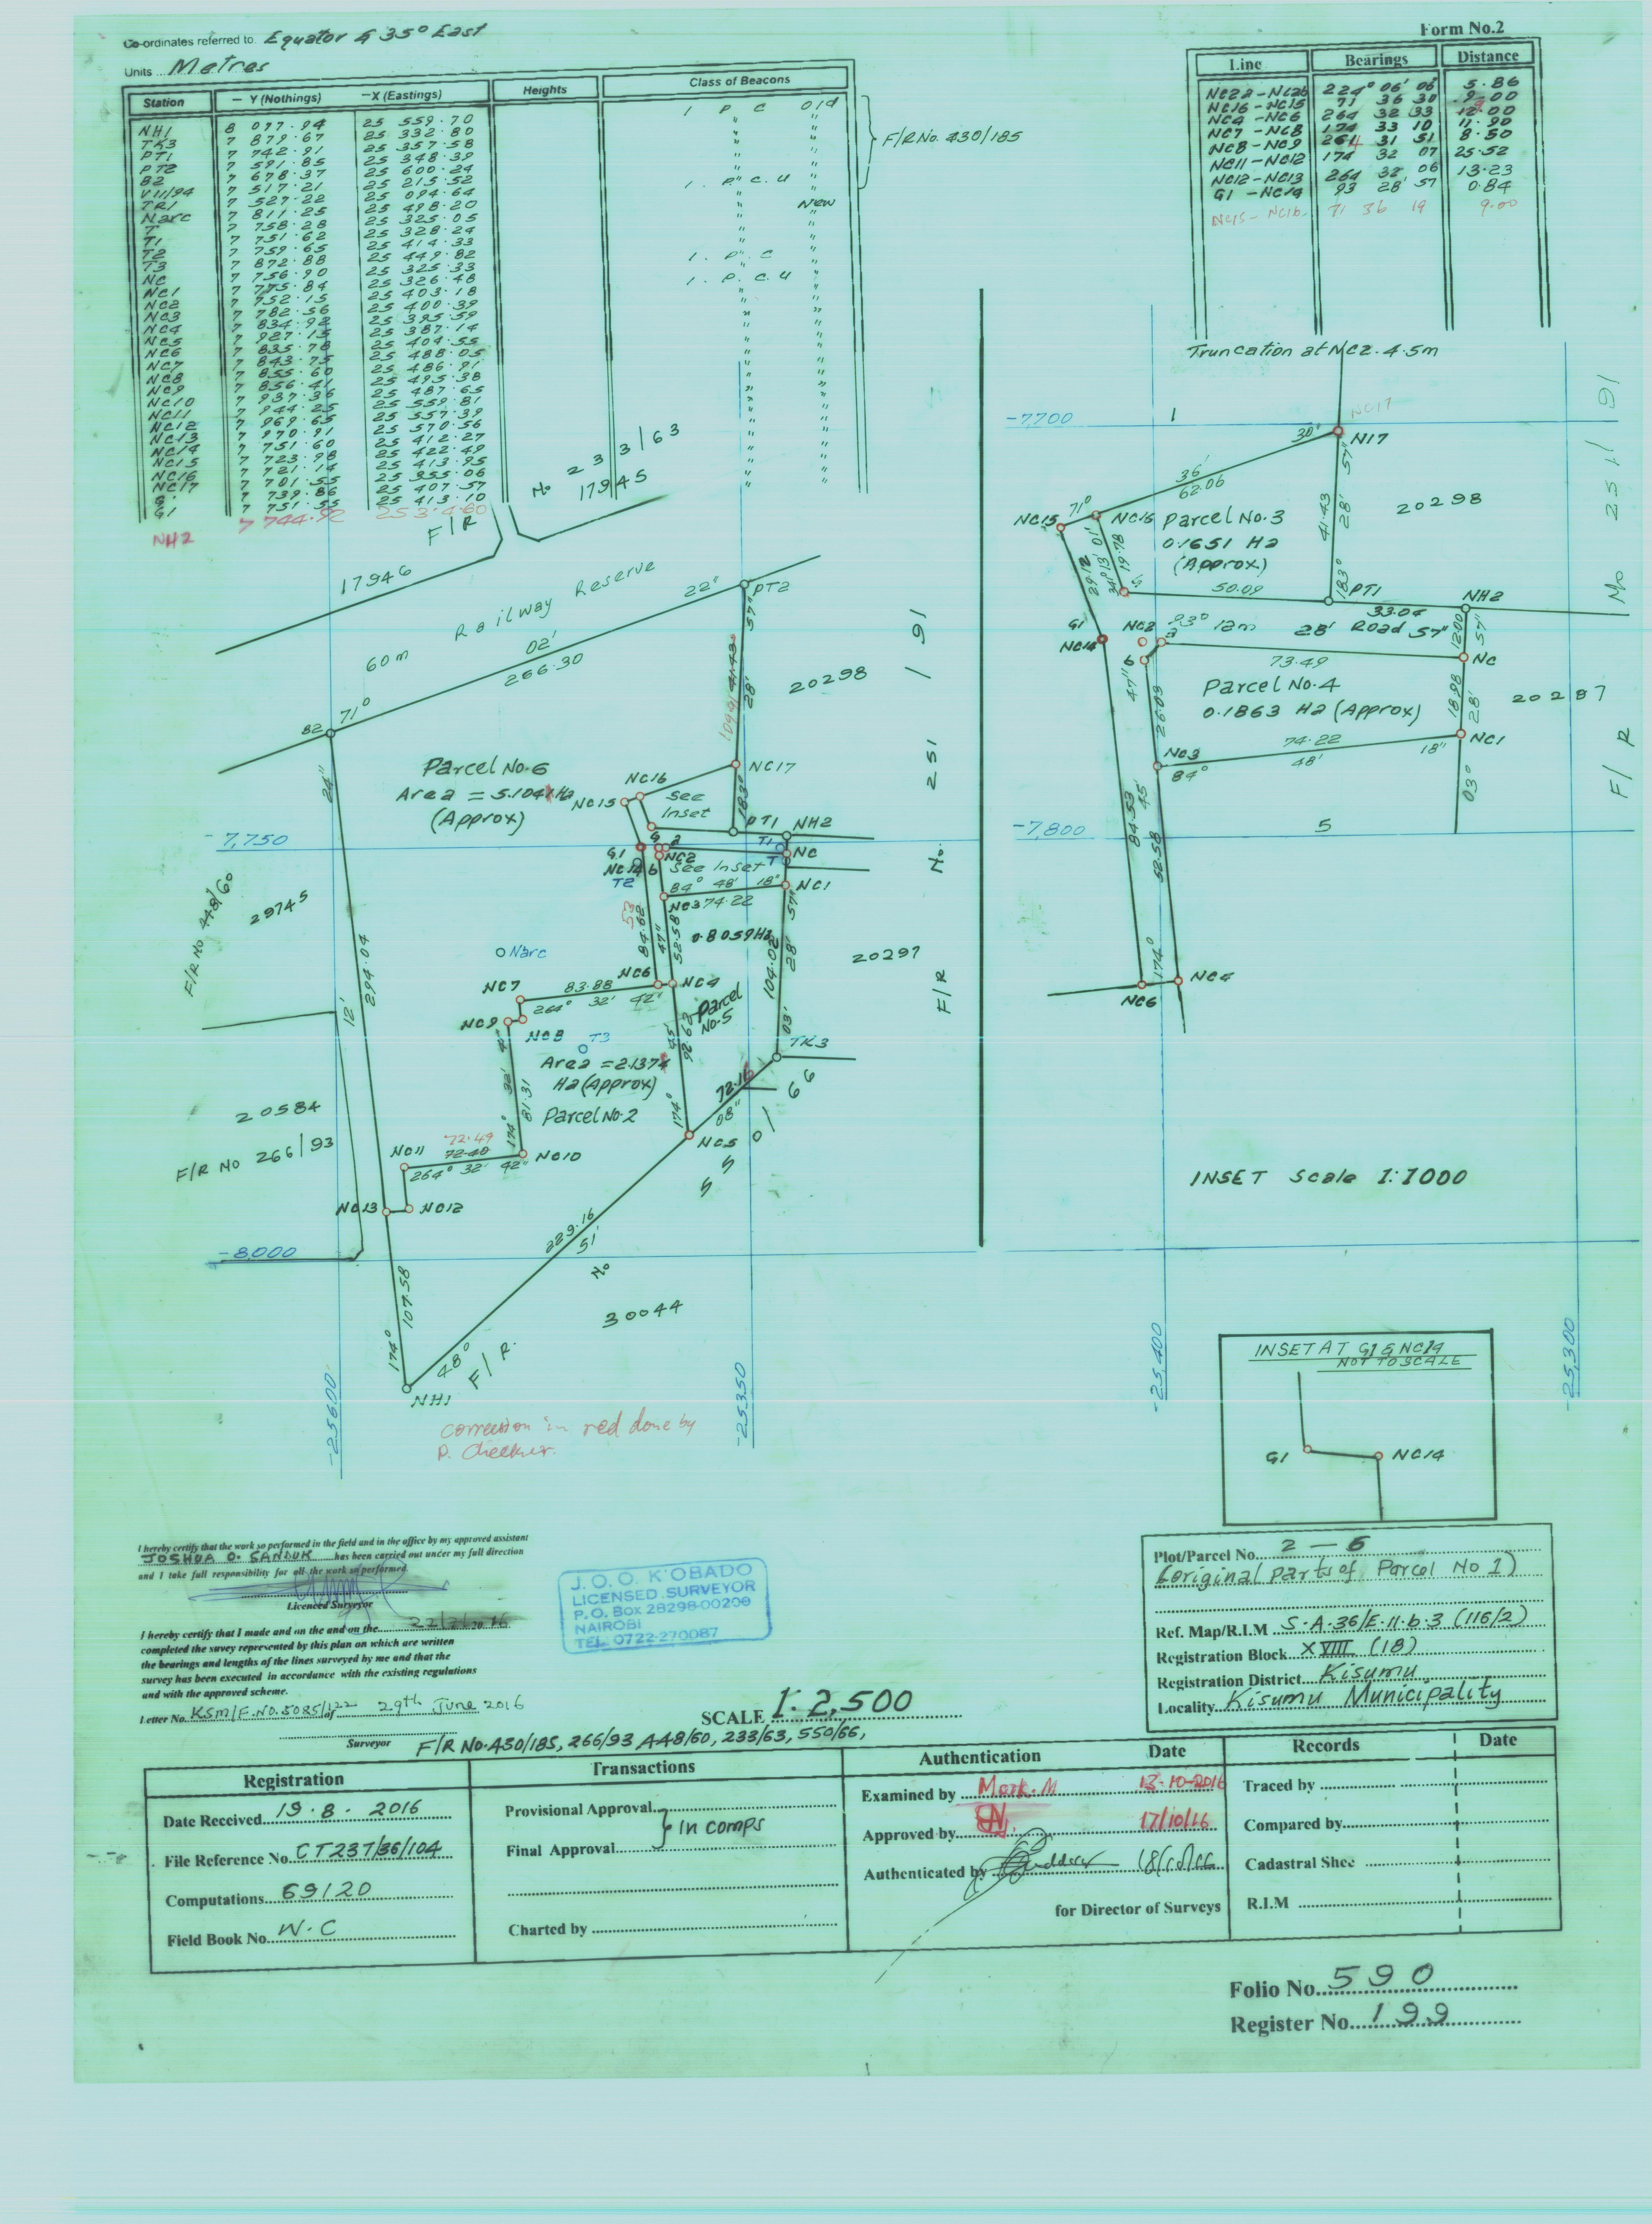 Co-ordinates referred to. Equator & 35° East
Units ... Metres
Form No.2
Station – Y (Nothings) –X (Eastings) Heights Class of Beacons
NH1 8 077·94 25 559·70 1 P C Old
TK3 7 879·67 25 332·80 "
PT1 7 742·91 25 357·58 "
PT2 7 591·85 25 348·39 "
B2 7 678·37 25 600·24 "
VII/94 7 517·21 25 215·52 1. P. C. U
TR1 7 527·22 25 094·64
Narc 7 811·25 25 498·20 New
T 7 758·28 25 325·05 "
T1 7 751·62 25 328·24 "
T2 7 759·65 25 414·33 "
T3 7 872·88 25 449·82 1. P. C "
NC 7 756·90 25 325·33 1. P. C. U "
NC1 7 775·84 25 326·48 "
NC2 7 752·15 25 403·18 "
NC3 7 782·56 25 400·39 "
NC4 7 834·92 25 395·59 "
NC5 7 927·15 25 387·14 "
NC6 7 835·78 25 404·55 "
NC7 7 843·75 25 488·05 "
NC8 7 855·60 25 486·91 "
NC9 7 856·41 25 495·38 "
NC10 7 937·36 25 487·65 "
NC11 7 944·25 25 559·81 "
NC12 7 969·65 25 557·39 "
NC13 7 970·91 25 570·56 "
NC14 7 751·60 25 412·27 "
NC15 7 723·98 25 422·49 "
NC16 7 721·14 25 413·95 "
NC17 7 701·55 25 355·06 "
G 7 739·86 25 407·57 "
G1 7 751·55 25 413·10 "
NH2 7 744·92
F/R No. 430/185
F/R No 233/63
17945
Line Bearings Distance
NC2a –NC2b 224° 06' 06" 5·86
NC16 –NC15 71 36 30 9·00
NC4 –NC6 264 32 33 12·00
NC7 –NC8 174 33 10 11·90
NC8 –NC9 264 31 51 8·50
NC11 –NC12 174 32 07 25·52
NC12–NC13 264 32 06 13·23
G1 –NC14 93 28' 57 0·84
NC15– NC16 71 36 19 9·00
Truncation at NC2. 4.5m
17946
Railway Reserve
60m
71° 02' 22"
266·30
PT2
B2
20298
57"
28'
183°
24"
294·04
12'
Parcel No.6
Area = 5.1041 Ha
(Approx)
NC16
NC15
NC17
See
Inset
PT1
NH2
–7,750
G
a
G1
NC2
NC14
b
T1
T
NC
T2
See Inset
84° 48' 18"
NC1
NC3 74·22
F/R No 448/60
29745
53
84·62
47"
52·58
0·8059Ha
104·02
57"
28'
03'
20297
Narc
NC7
83·88
264° 32' 42"
NC6
NC4
Parcel
No·5
NC9
NC8
T3
92·62
45'
TK3
Area =2.1374
Ha (Approx)
Parcel No.2
81·31
174° 32' 42"
72·16
08"
20584
F/R No 266/93
NC11
72·49
72·40
264° 32' 42"
NC10
174°
NC5
F/R No 550/66
NC13
NC12
–8,000
229·16
51'
48°
107·58
174°
NH1
F/R. No
30044
–25600
–25350
correction in red done by
P. Checker.
F/R No. 251/91
–7,700
1
NC17
N17
30"
36'
62·06
71°
NC15
NC16
Parcel No.3
0.1651 Ha
(Approx)
20298
41·43
57"
28'
183°
29·12
19·78
341° 13' 01"
G
50·09
PT1
33·04
NH2
G1
NC14
NC2
a
b
93° 28' 57"
12m Road
12·00
57"
73·49
NC
Parcel No.4
0.1863 Ha (Approx)
20287
26·03
47"
18·98
28'
NC3
84° 48' 18"
74·22
NC1
03°
–7,800
5
84·53
45'
52·58
174°
NC6
NC4
F/R No 251/91
INSET Scale 1:1000
–25,400
–25,300
INSET AT G1 & NC14
NOT TO SCALE
G1
NC14
I hereby certify that the work so performed in the field and in the office by my approved assistant
JOSHUA O. SANDUK has been carried out under my full direction
and I take full responsibility for all the work so performed.
Licenced Surveyor
I hereby certify that I made and on the and on the
completed the suvey represented by this plan on which are written
the bearings and lengths of the lines surveyed by me and that the
survey has been executed in accordance with the existing regulations
and with the approved scheme.
Letter No. KSM/F.NO.5085/122 of 29th June 2016
Surveyor
J. O. O. K'OBADO
LICENSED SURVEYOR
P. O. Box 28298-00200
NAIROBI
TEL. 0722-270087
SCALE 1:2,500
F/R No.430/185, 266/93 448/60, 233/63, 550/66,
Plot/Parcel No. 2 – 6
(original parts of Parcel No 1)
Ref. Map/R.I.M S·A·36/E·11·b·3 (116/2)
Registration Block XVIII (18)
Registration District Kisumu
Locality Kisumu Municipality
Registration
Date Received 19·8· 2016
File Reference No CT237/36/104
Computations 69120
Field Book No. W·C
Transactions
Provisional Approval
} in comps
Final Approval
Charted by
Authentication Date
Examined by Mark.M 13·10·2016
Approved by 17/10/16
Authenticated by
for Director of Surveys
Records Date
Traced by
Compared by
Cadastral Shee
R.I.M
Folio No. 590
Register No. 199